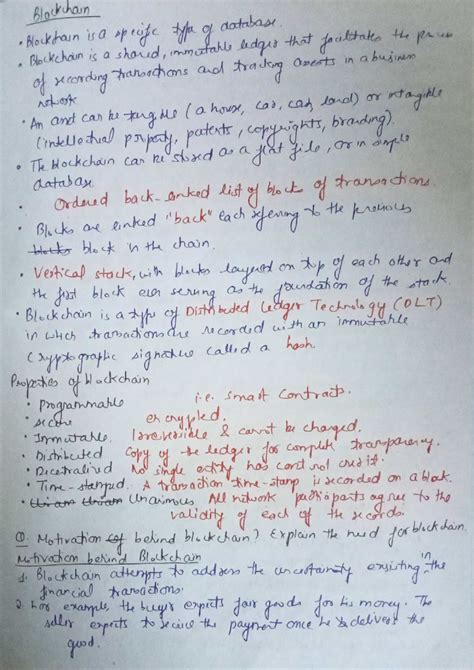 Blockchain
• Blockchain is a specific type of database.
• Blockchain is a shared, immutable ledger that facilitates the process
of recording transactions and tracking assets in a business
network
• An asset can be tangible (a house, car, cash, land) or intangible
(intellectual property, patents, copyrights, branding).
• The blockchain can be stored as a flat file, or in simple
database.
• Ordered back-linked list of block of transactions.
• Blocks are linked "back" each referring to the previous
block in the chain.
• Vertical stack, with blocks layered on top of each other and
the first block ever serving as the foundation of the stack.
• Blockchain is a type of Distributed Ledger Technology (DLT)
in which transactions are recorded with an immutable
Cryptographic signature called a hash.
Properties of blockchain
• Programmable i.e. Smart Contracts.
• Secure encrypted.
• Immutable. Irreversible & cannot be changed.
• Distributed Copy of the ledger for complete transparency.
• Decentralized No single entity has control
• Time-stamped. A transaction time-stamp is recorded on a block.
• Unanimous. All network participants agree to the
validity of each of the records.
Q. Motivation behind blockchain? Explain the need for blockchain.
Motivation behind Blockchain
1. Blockchain attempts to address the uncertainty existing in the
financial transactions.
2. For example, the buyer expects fair goods for his money. The
seller expects to receive the payment once he delivers the
good.